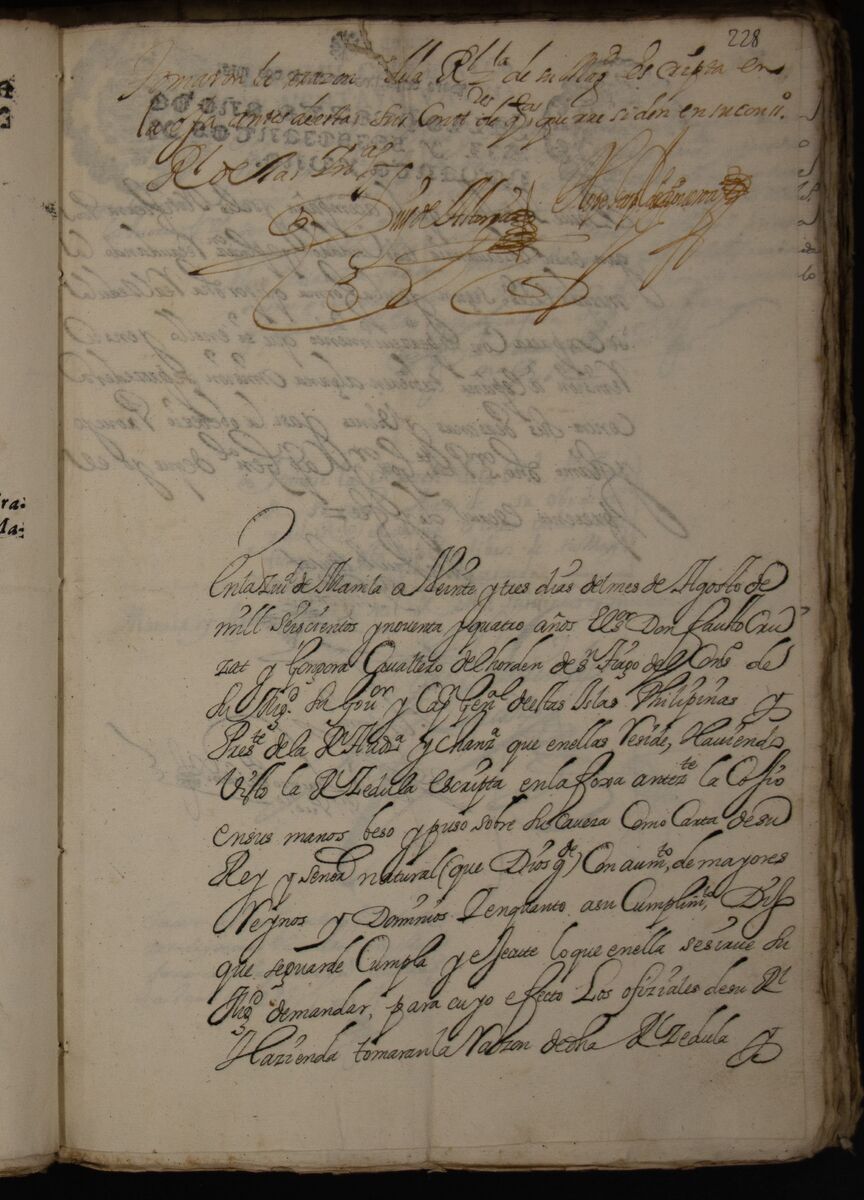 228
Tomaron la razon della Rl Zta de su Magd escripta en
la foxa antes de esta sus Contres de qtas que residen en su consº
Rl de las Indias
En la Ziud de Manila a Veinte y tres dias del mes de Agosto de
mill seiscientos y noventa y quatro años El Sor Don fausto Cru
zat y Gongora Cavallero del horden de S.n Tiago del Conso de
Su Magd. Su Gouor y Capn Genl de estas Islas Philipinas y
Preste de la Rl Auda y Chanza que en ellas Reside, Haviendo
Visto la Rl Zedula escripta en la foxa antezte la Cojio
en sus manos beso y puso sobre su Caveza Como Carta de su
Rey y Senor natural (que Dios gde) Con aumto de mayores
Reynos y Dominios Y en quanto a su Cumplimto Dixo
que se guarde Cumpla y execute lo que en ella se sirue Su
Magd demandar, para cuyo efecto Los ofiziales de su Rl
Hazienda tomaran la Razon de dha Rl Zedula y